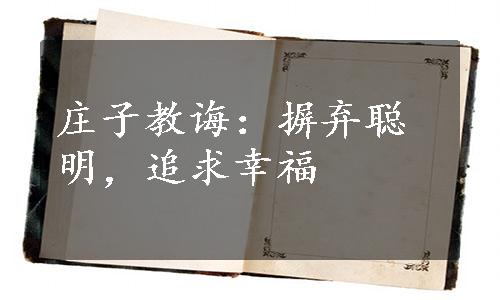 庄子教诲：摒弃聪
明，追求幸福